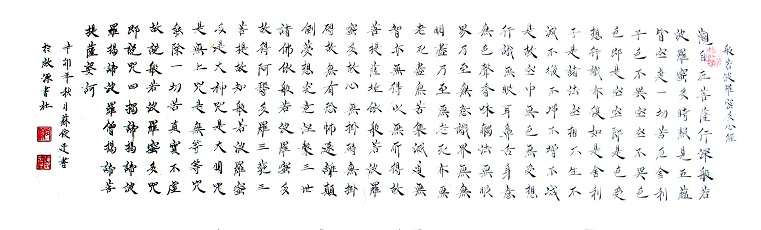 般若波羅蜜多心經
觀自在菩薩行深般若
波羅蜜多時照見五蘊
皆空度一切苦厄舍利
子色不異空空不異色
色即是空空即是色受
想行識亦復如是舍利
子是諸法空相不生不
滅不垢不淨不增不減
是故空中無色無受想
行識無眼耳鼻舌身意
無色聲香味觸法無眼
界乃至無意識界無無
明盡乃至無老死亦無
老死盡無苦集滅道無
智亦無得以無所得故
菩提薩埵依般若波羅
蜜多故心無掛礙無掛
礙故無有恐怖遠離顛
倒夢想究竟涅槃三世
諸佛依般若波羅蜜多
故得阿耨多羅三藐三
菩提故知般若波羅蜜
多是大神咒是大明咒
是無上咒是無等等咒
能除一切苦真實不虛
故說般若波羅蜜多咒
即說咒曰揭諦揭諦波
羅揭諦波羅僧揭諦菩
提薩婆訶
辛卯年秋月蘇俊書
於源書社